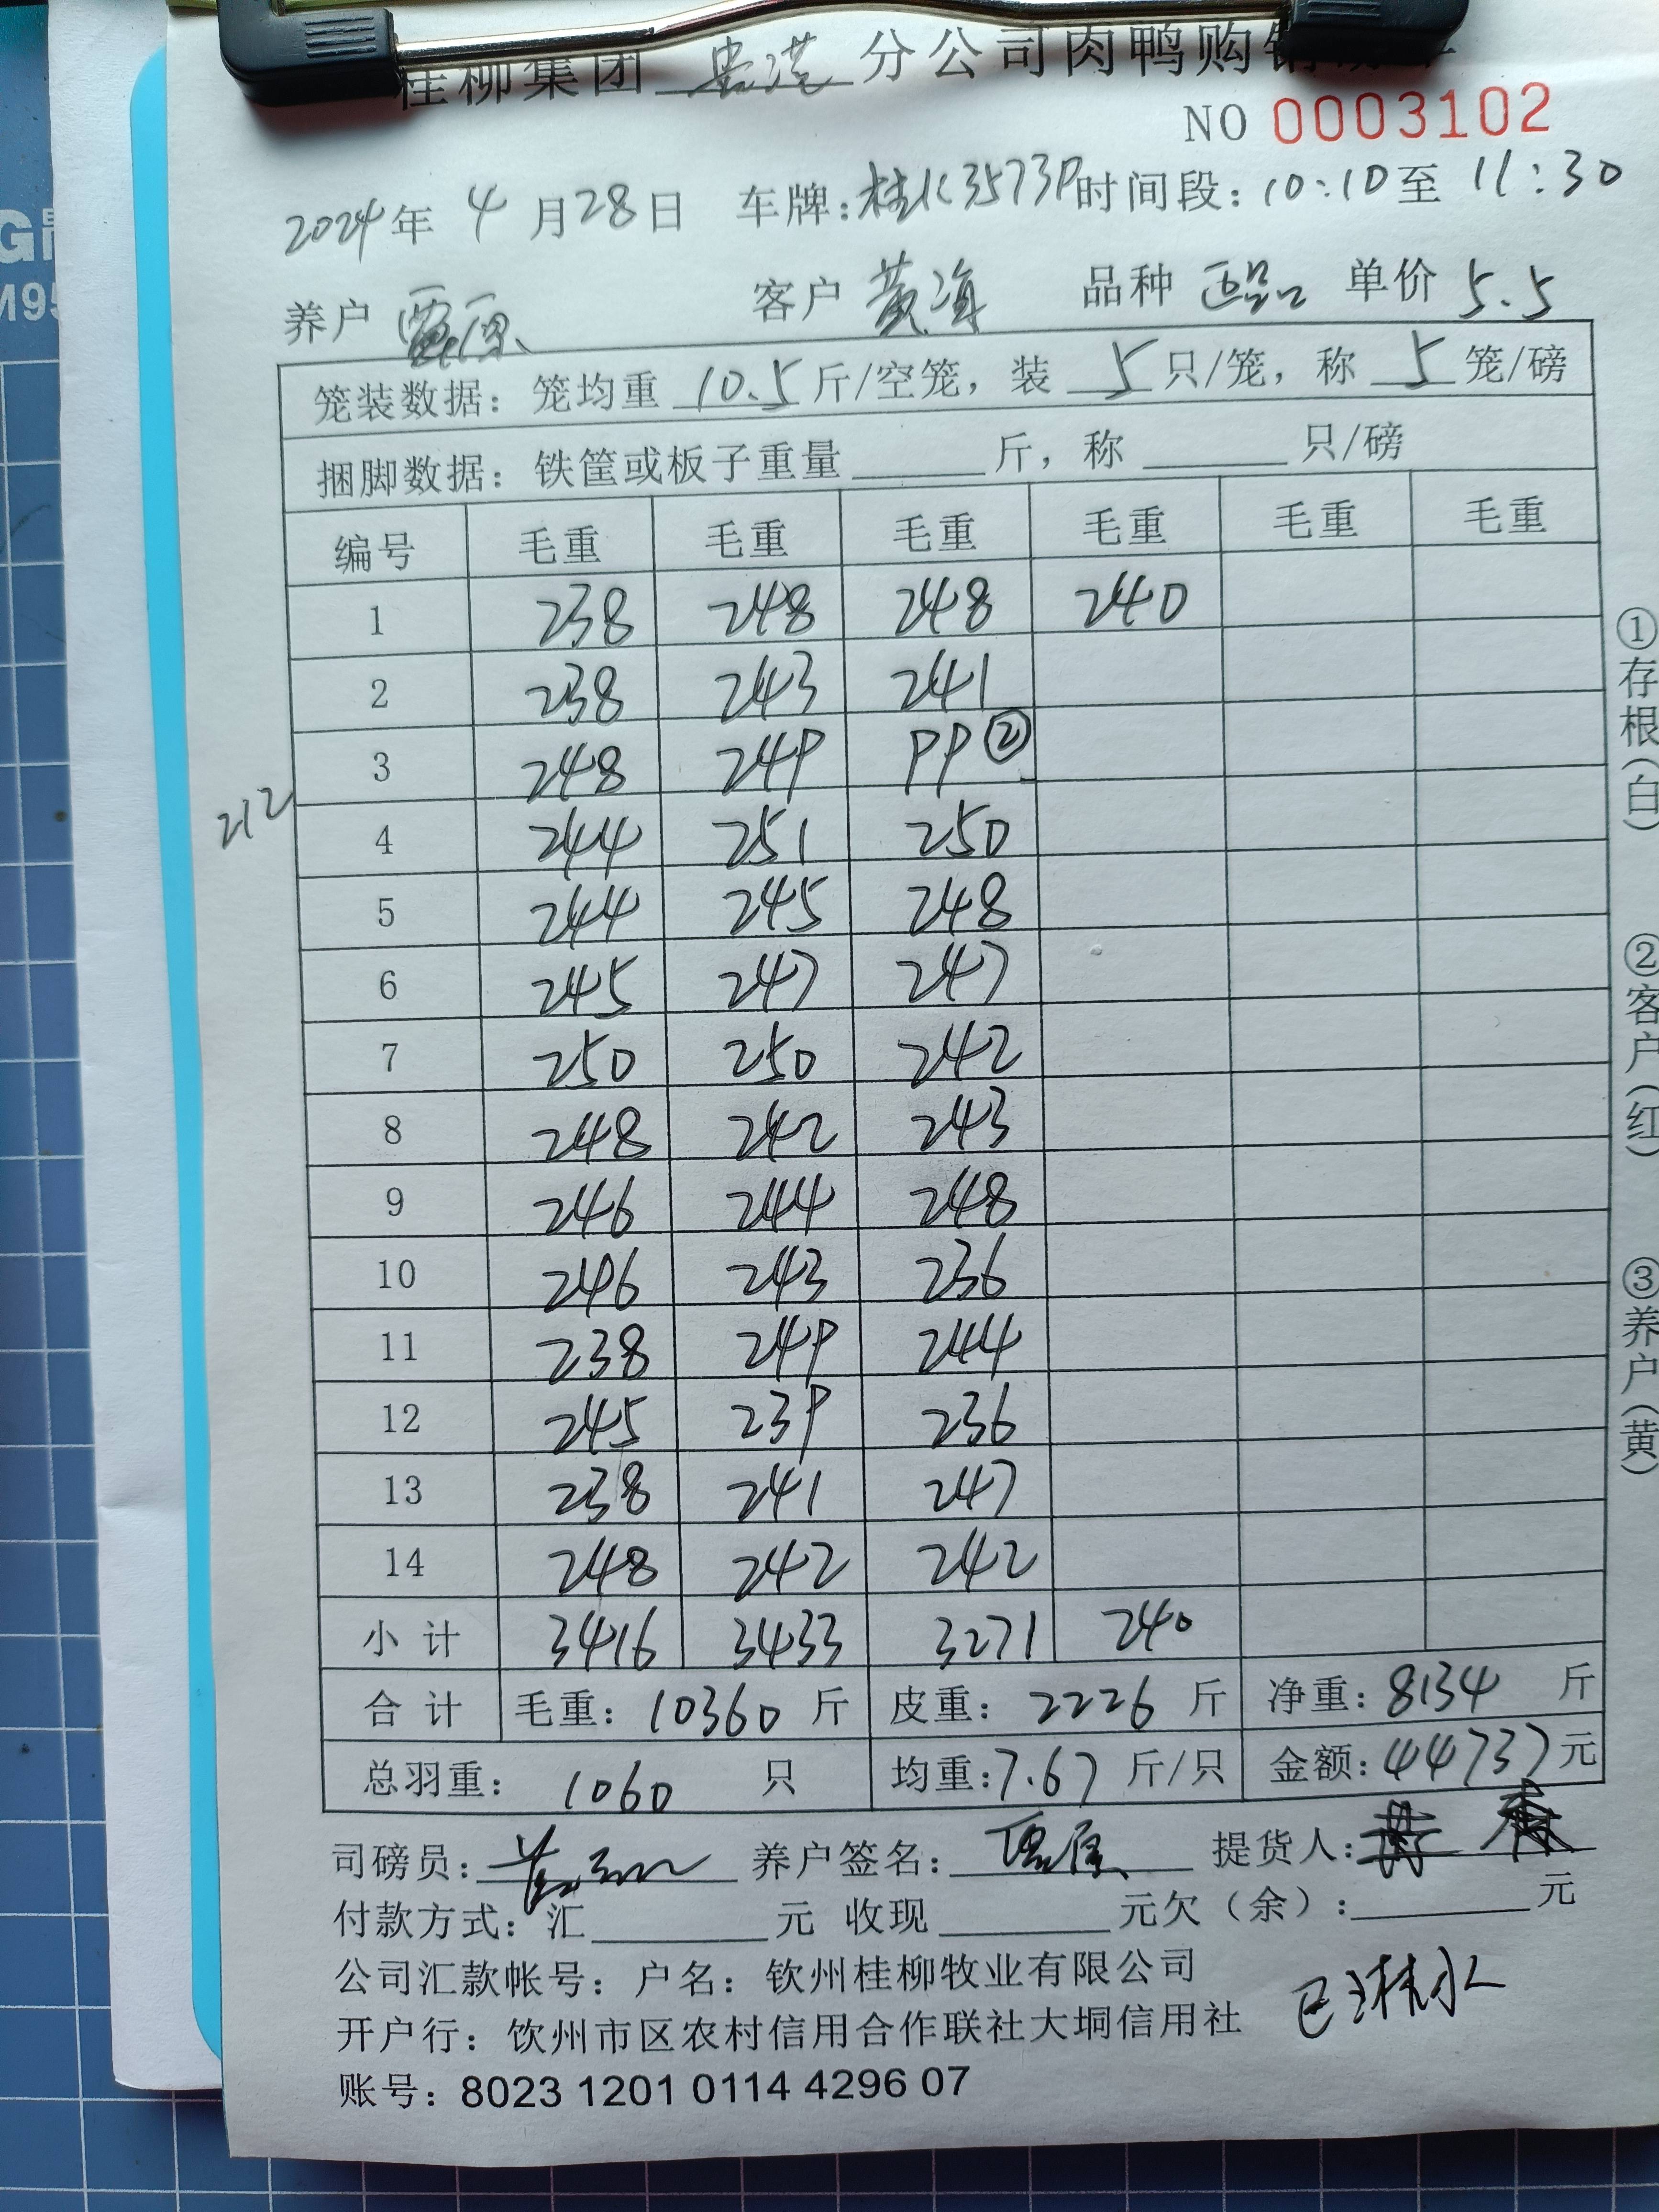 桂柳集团 贵港 分公司肉鸭购销
NO 0003102
2024年 4 月28日 车牌:桂K3573P时间段:10:10至 11:30
养户 客户 黄海 品种 正品 单价 5.5
笼装数据:笼均重 10.5 斤/空笼,装 5 只/笼,称 5 笼/磅
捆脚数据:铁筐或板子重量 斤,称 只/磅
编号 毛重 毛重 毛重 毛重 毛重 毛重
1 238 248 248 240
2 238 243 241
3 248 249 99 ②
212
4 244 251 250
5 244 245 248
6 245 247 247
7 250 250 242
8 248 242 243
9 246 244 248
10 246 243 236
11 238 249 244
12 245 239 236
13 238 241 247
14 248 242 242
小计 3416 3433 3271 240
合计 毛重:10360 斤 皮重:2226 斤 净重:8134 斤
总羽重:1060 只 均重:7.67 斤/只 金额:44737元
司磅员: 养户签名: 提货人:
付款方式:汇 元 收现 元欠(余): 元
公司汇款帐号:户名:钦州桂柳牧业有限公司
开户行:饮州市区农村信用合作联社大垌信用社
账号:8023 1201 0114 4296 07
①存根(白) ②客户(红) ③养户(黄)